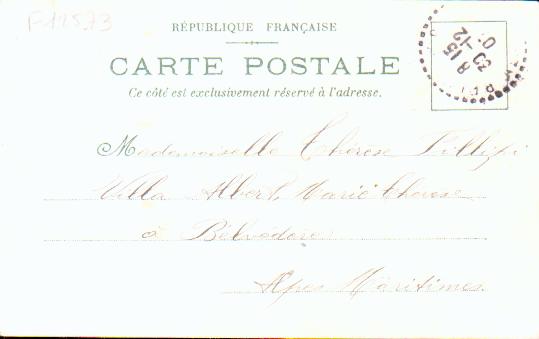 F12573
RÉPUBLIQUE FRANÇAISE
CARTE POSTALE
Ce côté est exclusivement réservé à l'adresse.
8 15
23 -12
Mademoiselle Thérèse
Villa Albert, Marie Thérèse
à Belvédère
Alpes Maritimes